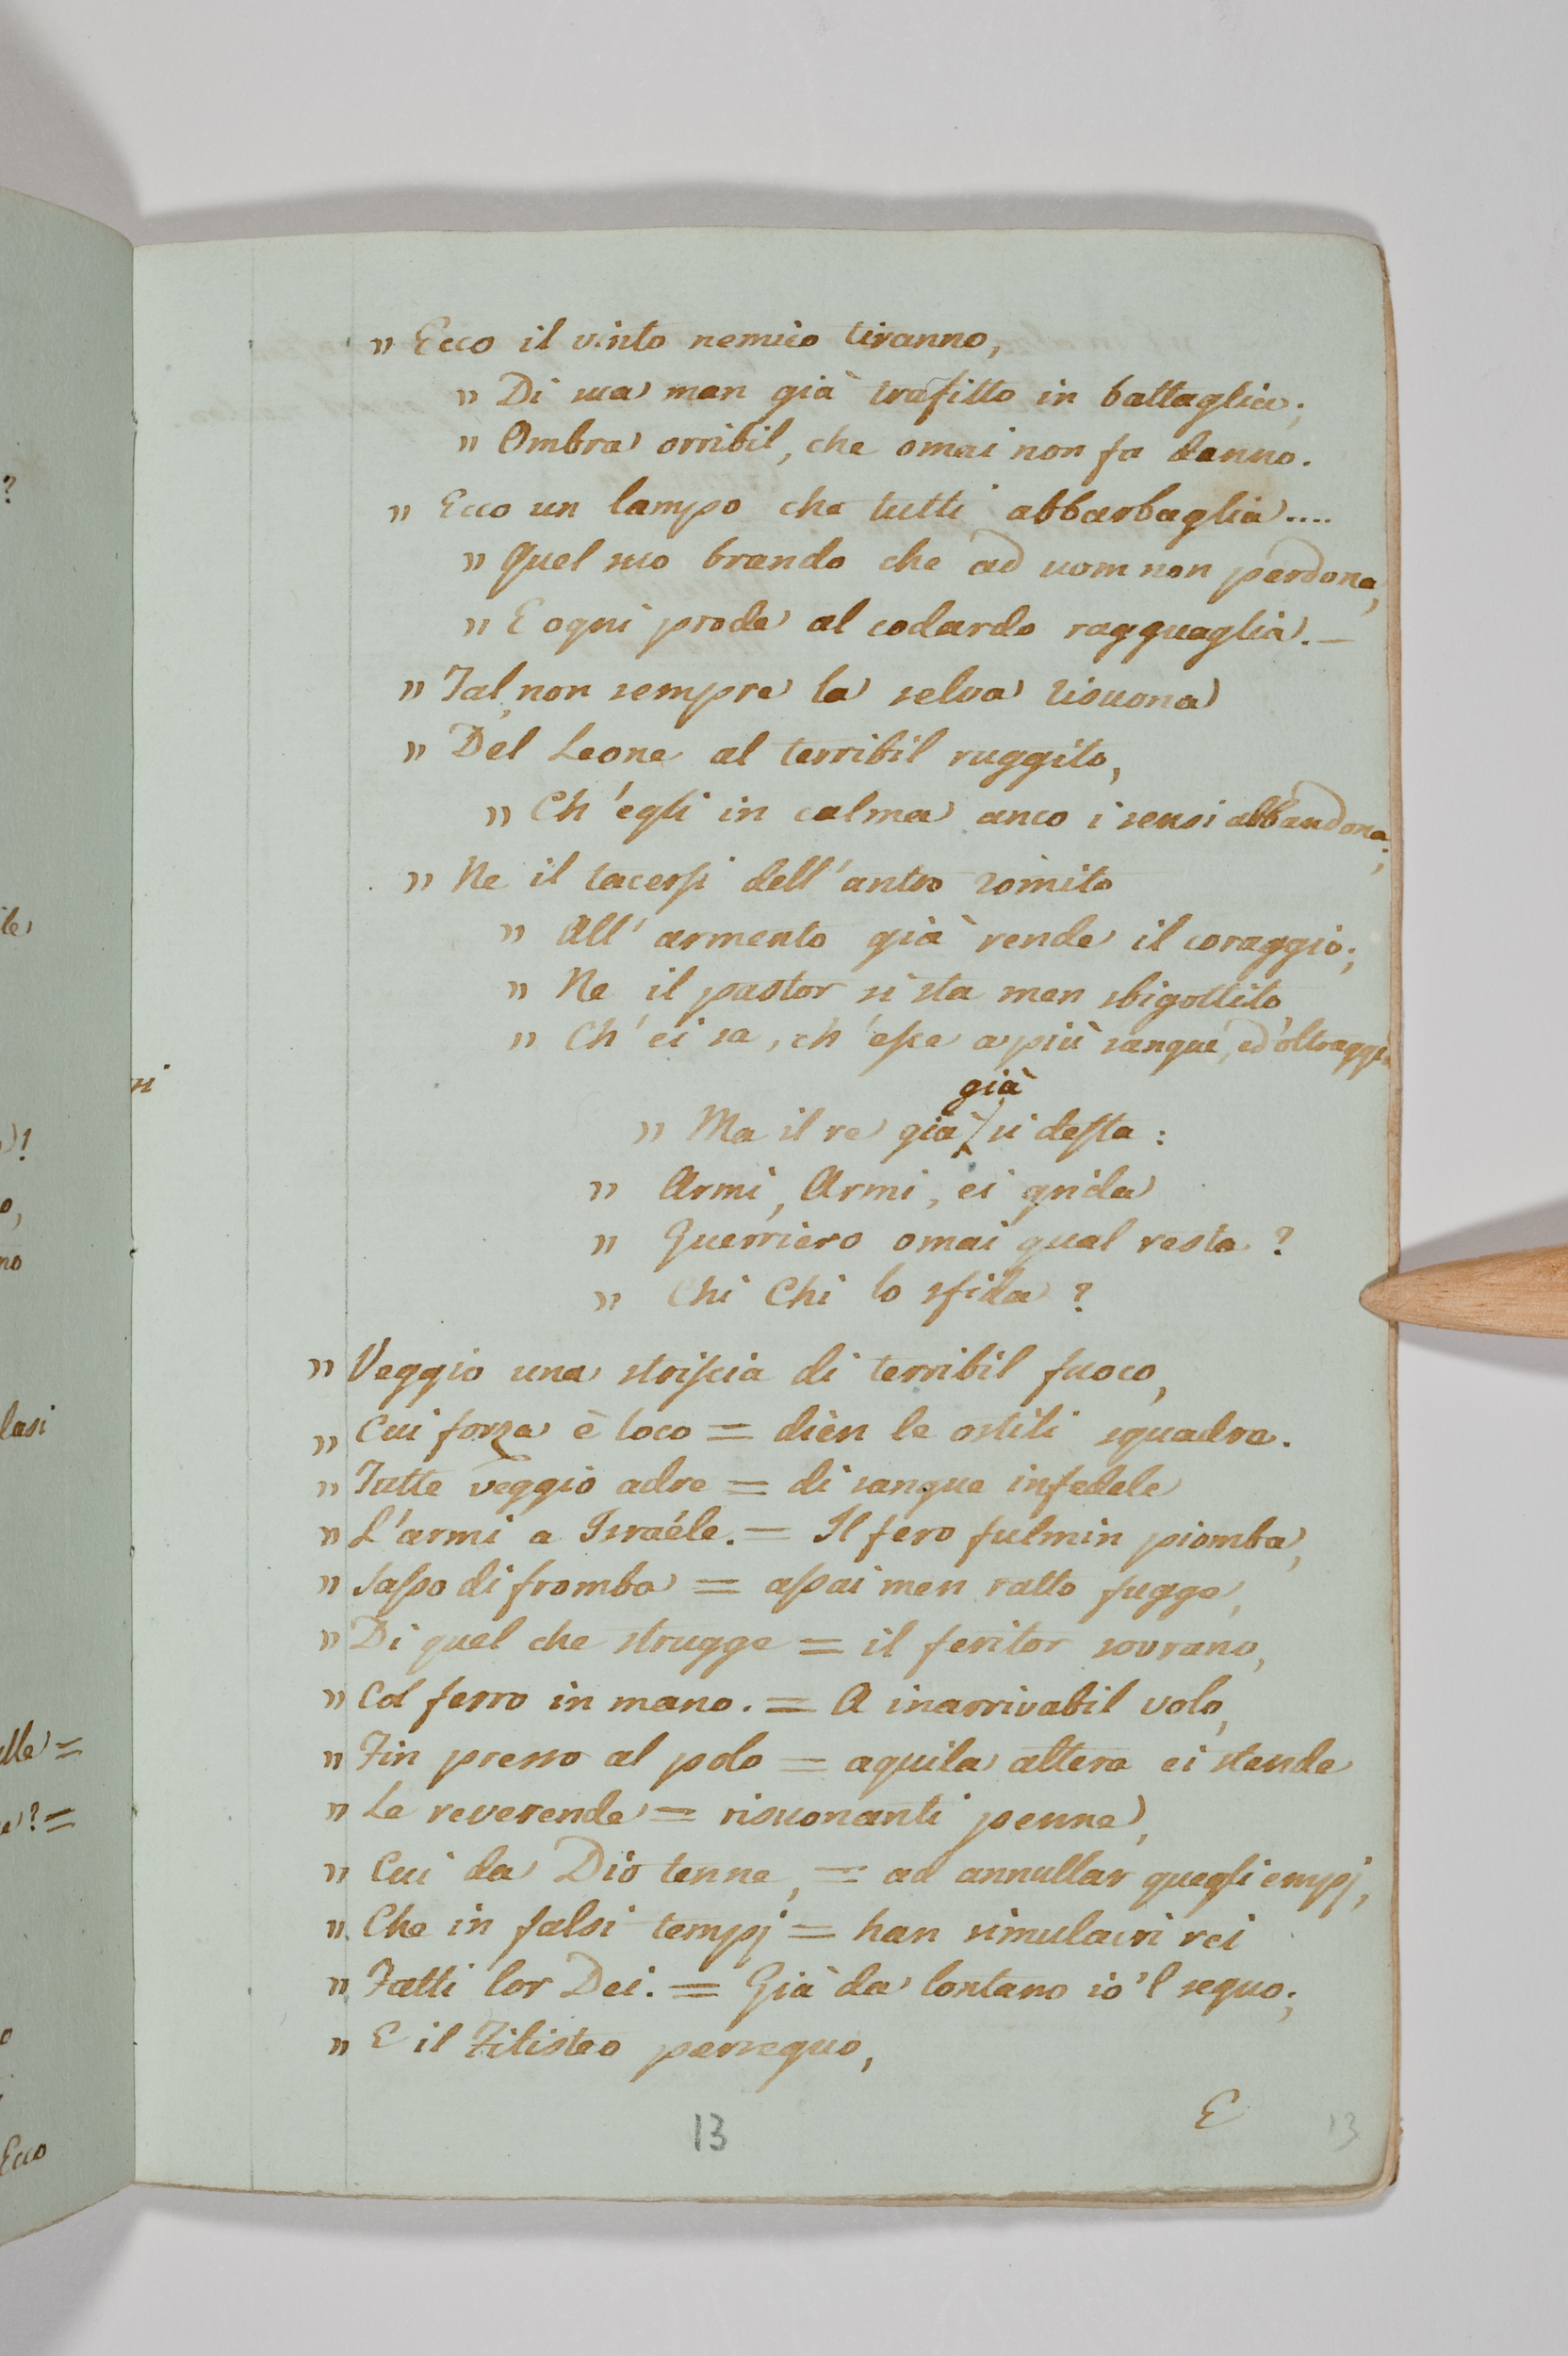 " Ecco il vinto nemico tiranno,
" Di sua man già trafitto in battaglia;
" Ombra orribil, che omai non fa danno.
" Ecco un lampo che tutti abbarbaglia....
" Quel suo brando che ad uom non perdona,
" E ogni prode al codardo ragguaglia. —
" Tal, non sempre la selva risuona
" Del Leone al terribil ruggito,
" Ch'egli in calma anco i sensi abbandona;
" Ne il tacersi dell'antro romito
" All' armento già rende il coraggio;
" Ne il pastor si sta men sbigottito,
" Ch' ei sa, ch' esce a più sangue, ed'oltraggio
già
" Ma il re già si desta:
" Armi, Armi, ei grida
" Guerriero omai qual resta?
" Chi Chi lo sfida?
" Veggio una striscia di terribil fuoco,
" Cui forza è loco = dièn le ostili squadre.
" Tutte veggio adre = di sangue infedele
" L'armi a Israéle. = Il fero fulmin piomba,
" Sasso di fromba = assai men ratto fugge,
" Di quel che strugge = il feritor sovrano,
" Col ferro in mano. = A inarrivabil volo,
" Fin presso al polo = aquila altera ei stende
" Le reverende = risuonanti penne,
" Cui da Dio tenne, = ad annullar quegli empj,
" Che in falsi tempj = han simulacri rei
" Fatti lor Dei. = Già da lontano io'l seguo;
" E il Filisteo perseguo,
E
13
13
?
si
lasi
Ecco